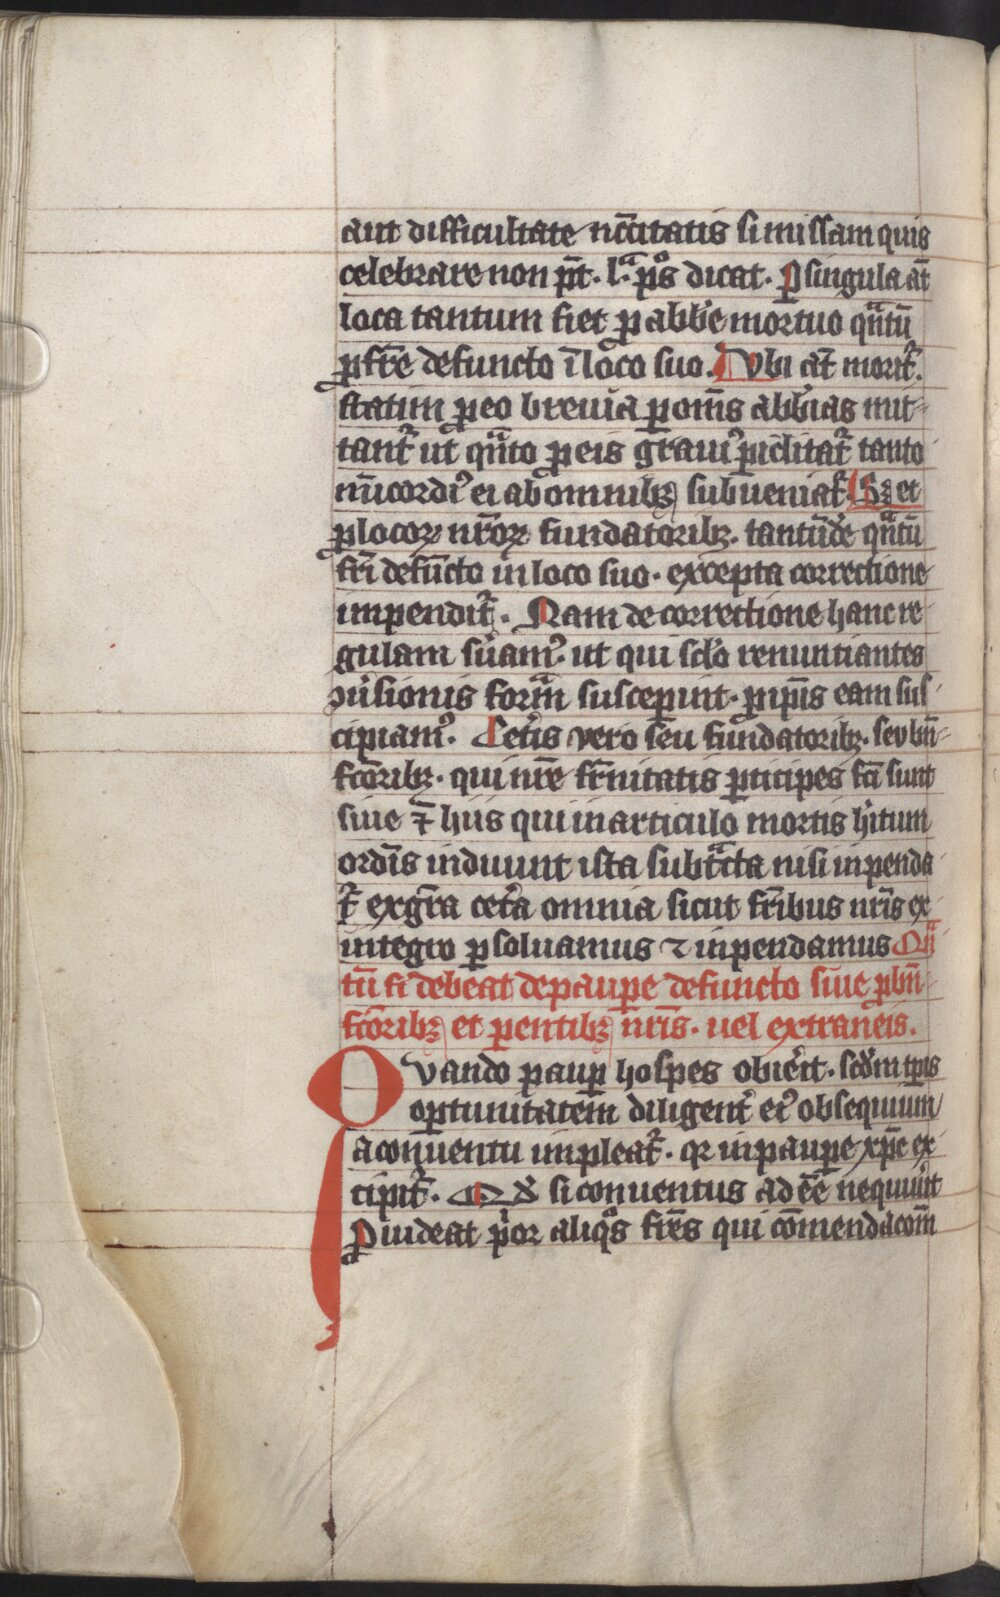 aut difficultate nc̄citatis si missam quis
celebrare non p̄t. lᵃ. p̄s dicat. P singula at̄
loca tantum fiet p abbe mortuo qᵃntū
p fr̄e defuncto ī loco suo. Vbi at̄ morit᷑.
statim p eo breuia p om̄s abbīas mit-
tant᷑ ut qᵃnto p eis grauiꝰ piclitat᷑ tanto
mīcordiꝰ ei ab omnibꝫ subueniat᷑. Sꝫ et
p locoꝝ nr̄oꝝ fundatoribꝫ. tantūdē qᵃntū
fr̄i defūcto in loco suo. excepta correctione
impendit᷑. Nam de correctione hanc re-
gulam suamꝰ. ut qui sclo renuntiantes
ꝯuersionis formā susceperint. p ip̄is eam sus-
cipiamꝰ. Cetis vero seu fundatoribꝫ. seu bn̄-
fcōribꝫ. qui nr̄e fr̄nitatis pticipes fc̄i sunt
siue ⁊ hiis qui in articulo mortis hitum
ordīs induunt ista subtᵃcta nisi inpenda
t᷑ ex gr̄a cetᵃ omnia sicut fr̄ibus nr̄is ex
integro psoluamus ⁊ inpendamus Qᵃn
tū fi debeat de paupe defuncto siue p bn̄-
fcōribꝫ et pentibꝫ nr̄is. uel extraneis.
Quando paup hospes obierit. scdm tp̄is
oportunitatem diligent᷑ eiꝰ obsequium
a conuentu impleat᷑. qꝛ in paupe xp̄c ex
cipit᷑. Qd̄ si conuentus adeē nequiuīt
Puideat pⁱor aliqºs fr̄es qui cōmendacom̄